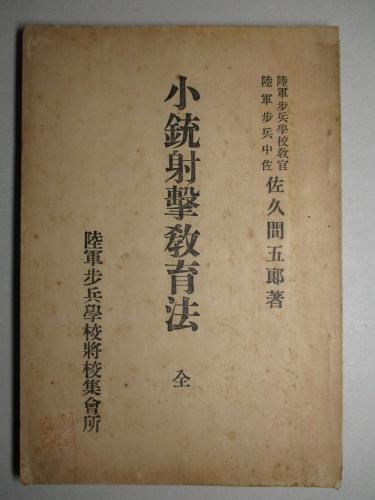 陸軍步兵學校敎官
陸軍步兵中佐
佐久間五郞著
小銃射擊敎育法 全
陸軍步兵學校將校集會所